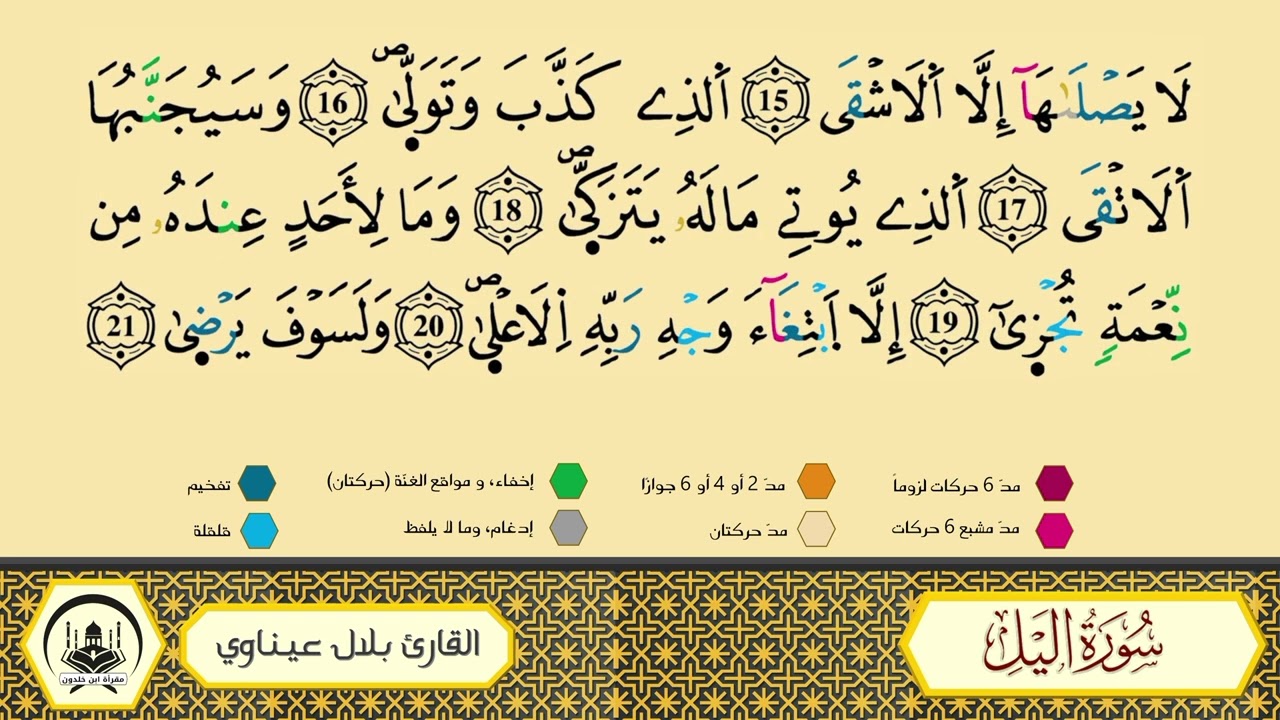 لَا يَصْلَىٰهَآ إِلَّا اَلَاشْقَى 15 اَلذِے كَذَّبَ وَتَوَلّٰىۖ 16 وَسَيُجَنَّبُهَا
اَلَاتْقَى 17 اَلذِے يُوتِے مَالَهُۥ يَتَزَكّٰىۖ 18 وَمَا لِأَحَدٍ عِندَهُۥ مِن
نِّعْمَةٖ تُجْزٰىٓ 19 إِلَّا اَبْتِغَآءَ وَجْهِ رَبِّهِ اِلَاعْلٰىۖ 20 وَلَسَوْفَ يَرْضٰى 21
مدّ 6 حركات لزوماً
مدّ 2 أو 4 أو 6 جوازًا
إخفاء، و مواقع الغنّة (حركتان)
تفخيم
مدّ مشبع 6 حركات
مدّ حركتان
إدغام، وما لا يلفظ
قلقلة
سُورَةُ اليْلِ
القارئ بلال عيناوي
مقرأة ابن خلدون